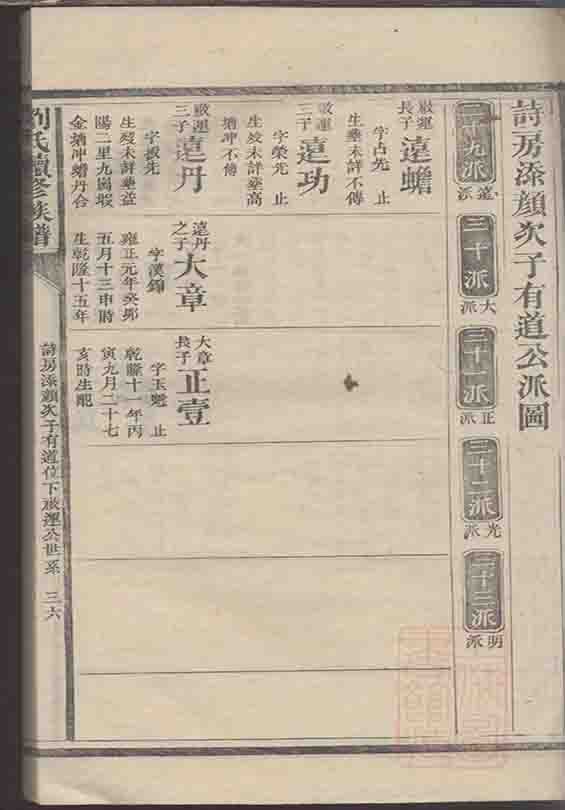 詩房添顏次子有道公派圖
二十九派
遠派
三十派
大派
三十一派
正派
三十二派
光派
三十三派
明派
啟運
長子
遠蟾
字占先 止
生塟未詳不傳
啟運
三子
遠功
字榮先 止
生歿未詳塟高
塘冲不傳
啟運
三子
遠丹
字拔先
生歿未詳塟益
陽二里九崗塅
金塘冲蟾丹合
遠丹
之子
大章
字漢錦
雍正元年癸卯
五月十三申時
生乾隆十五年
大章
長子
正壹
字玉魁 止
乾隆十一年丙
寅九月二十七
亥時生配
劉氏續修族譜
詩房添顏次子有道位下啟運公世系 三六